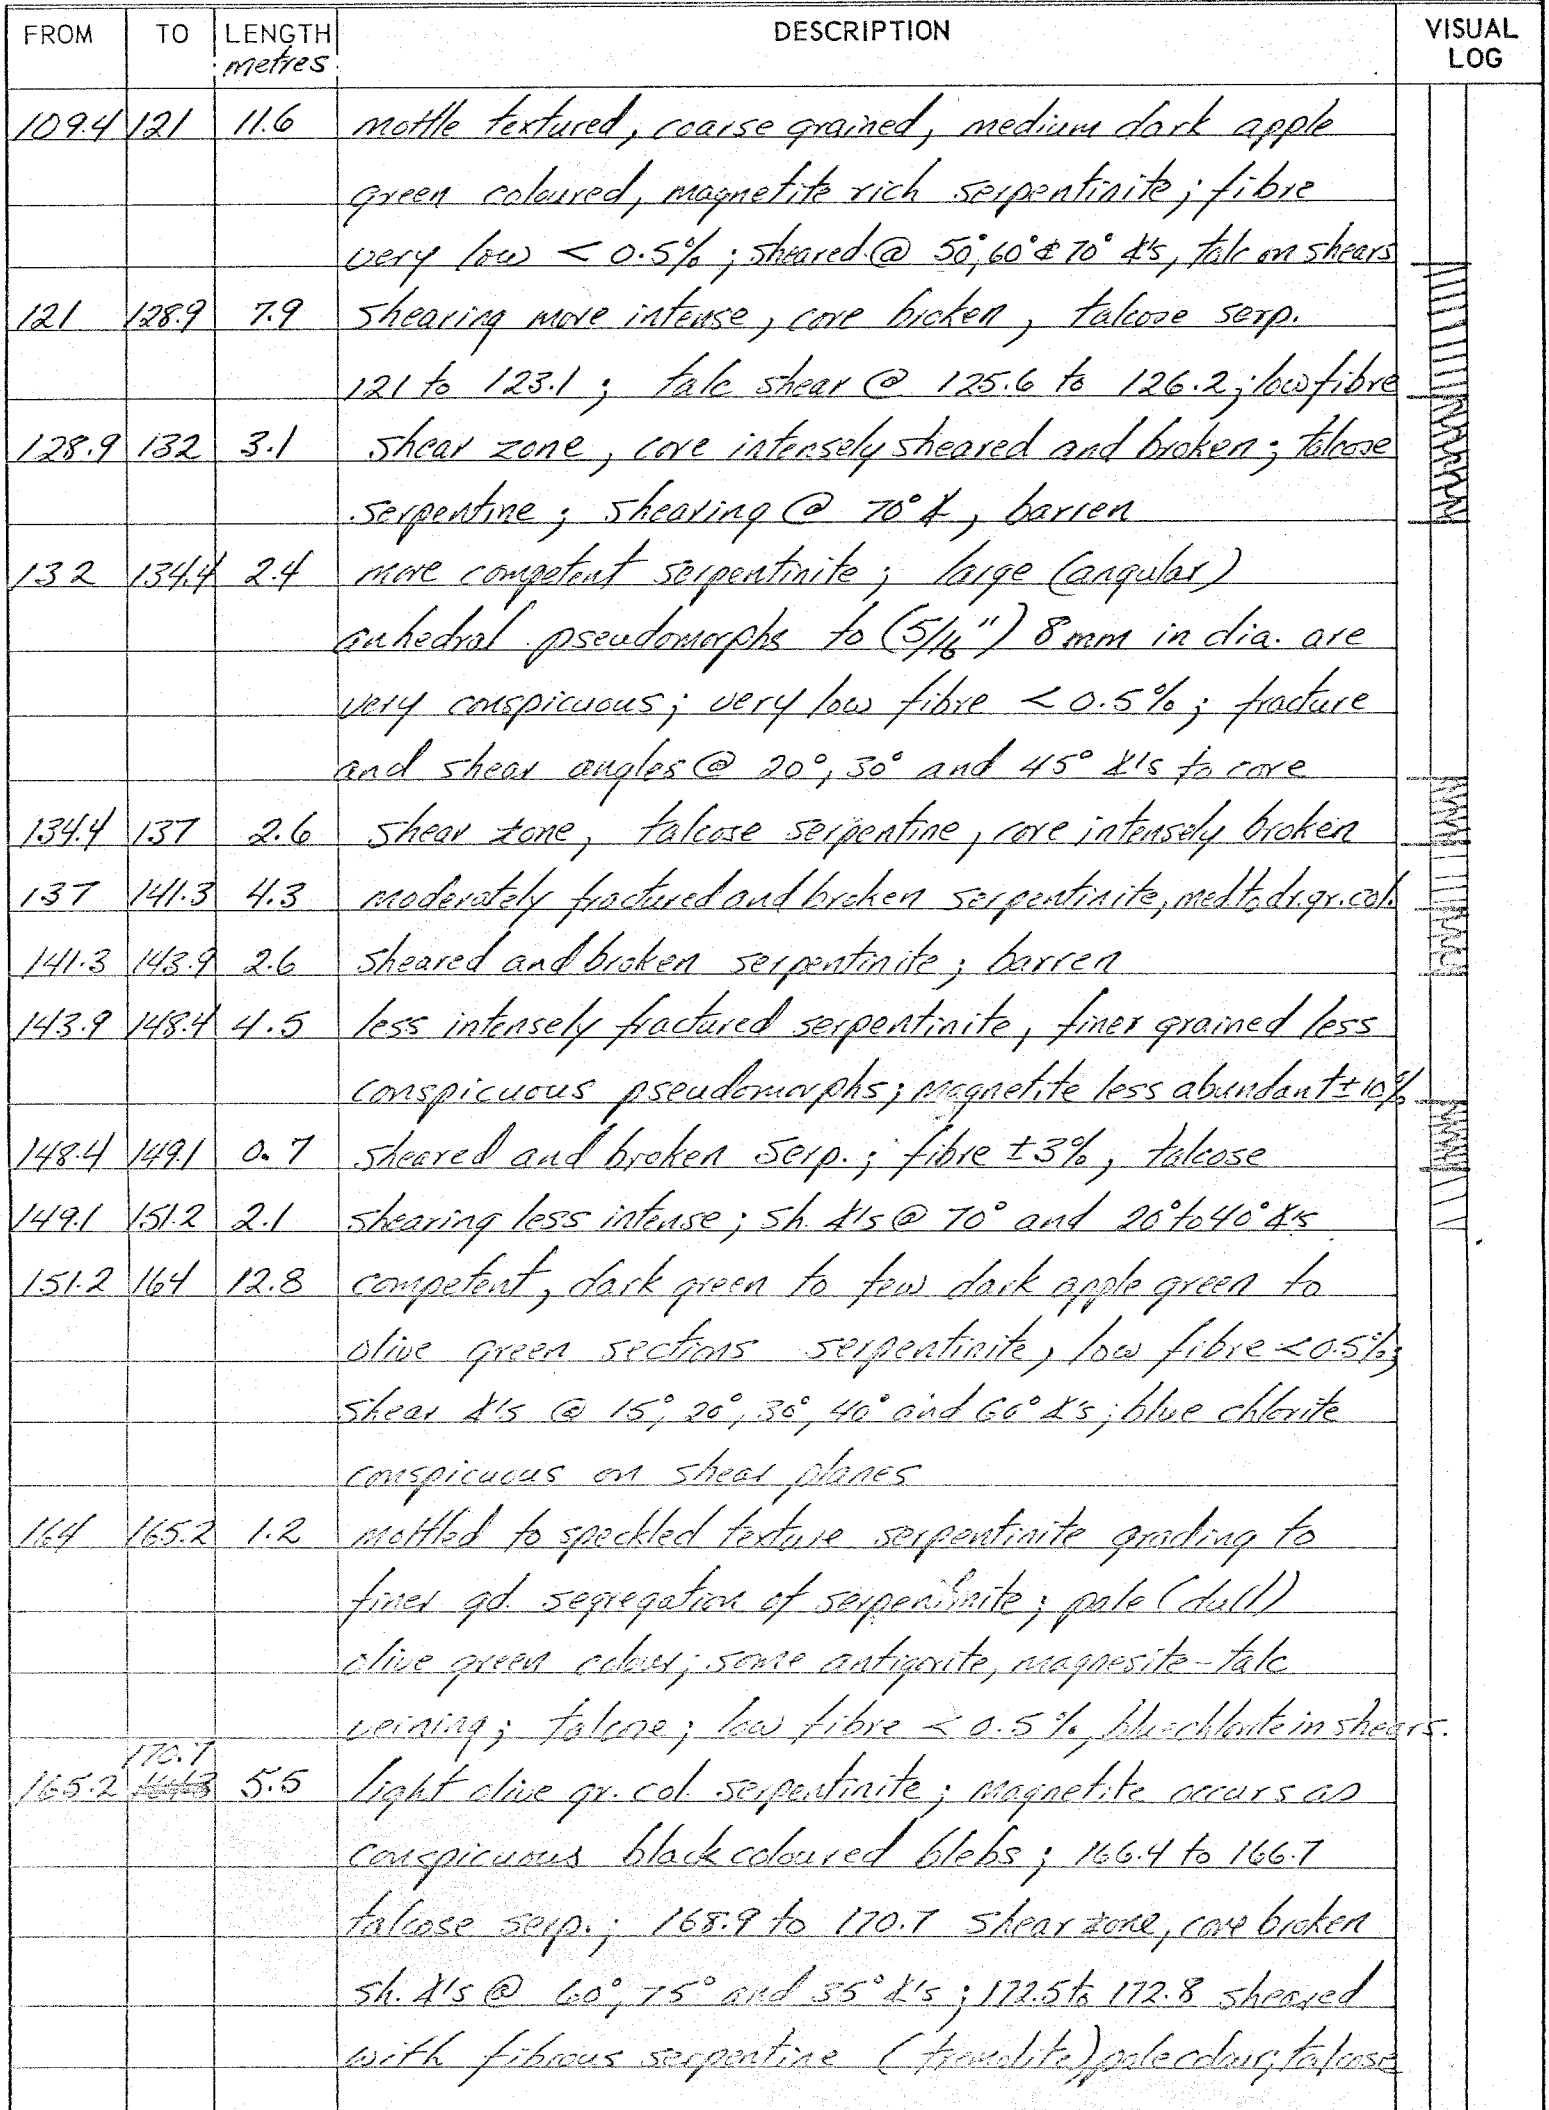 FROM TO LENGTH metres DESCRIPTION VISUAL LOG
109.4 121 11.6 mottle textured, coarse grained, medium dark apple
green coloured, magnetite rich serpentinite; fibre
very low < 0.5%; sheared @ 50°, 60° & 70° ∡'s, talc on shears
121 128.9 7.9 shearing more intense, core broken, talcose serp.
121 to 123.1; talc shear @ 125.6 to 126.2; low fibre
128.9 132 3.1 shear zone, core intensely sheared and broken; talcose
serpentine; shearing @ 70° ∡, barren
132 134.4 2.4 more competent serpentinite; large (angular)
anhedral pseudomorphs to (5/16") 8 mm in dia. are
very conspicuous; very low fibre < 0.5%; fracture
and shear angles @ 20°, 30° and 45° ∡'s to core
134.4 137 2.6 shear zone, talcose serpentine, core intensely broken
137 141.3 4.3 moderately fractured and broken serpentinite, med to dr. gr. col.
141.3 143.9 2.6 sheared and broken serpentinite; barren
143.9 148.4 4.5 less intensely fractured serpentinite, finer grained less
conspicuous pseudomorphs; magnetite less abundant ± 10%
148.4 149.1 0.7 sheared and broken serp.; fibre ± 3%, talcose
149.1 151.2 2.1 shearing less intense; sh. ∡'s @ 70° and 20° to 40° ∡'s
151.2 164 12.8 competent, dark green to few dark apple green to
olive green sections serpentinite, low fibre < 0.5%;
shear ∡'s @ 15°, 20°, 30°, 40° and 60° ∡'s; blue chlorite
conspicuous on shear planes
164 165.2 1.2 mottled to speckled texture serpentinite grading to
finer gd. segregation of serpentinite; pale (dull)
olive green colour; some antigorite, magnesite-talc
veining; talcose; low fibre < 0.5%, blue chlorite in shears.
170.7
165.2 5.5 light olive gr. col. serpentinite; magnetite occurs as
conspicuous black coloured blebs; 166.4 to 166.7
talcose serp.; 168.9 to 170.7 shear zone, core broken
sh. ∡'s @ 60°, 75° and 35° ∡'s; 172.5 to 172.8 sheared
with fibrous serpentine (tremolite) pale colour, talcose